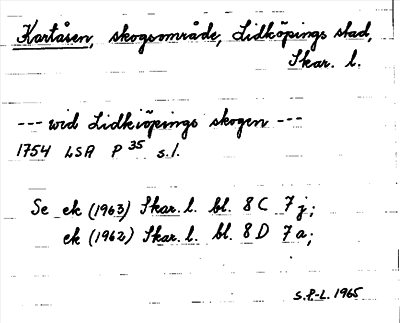 Kartåsen, skogsområde, Lidköpings stad,
Skar. l.
--- wid Lidkiöpings skogen ---
1754 LSA P 35 s.l.
Se ek (1963) Skar. l. bl. 8 C 7 j;
ek (1962) Skar. l. bl. 8 D 7 a;
S.P-L. 1965